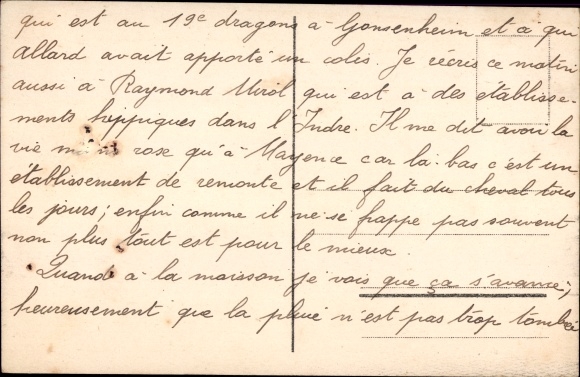 qui est au 19e dragons à Gonsenheim et à qui
allard avait apporté un colis. Je récris ce matin
aussi à Raymond Mirol qui est à des établisse-
ments hippiques dans l'Indre. Il me dit avoir la
vie moins rose qu'à Mayence car là-bas c'est un
établissement de remonte et il fait du cheval tous
les jours; enfin comme il ne se frappe pas souvent
non plus tout est pour le mieux.
Quand à la maison je vois que ça s'avance;
heureusement que la pluie n'est pas trop tombée